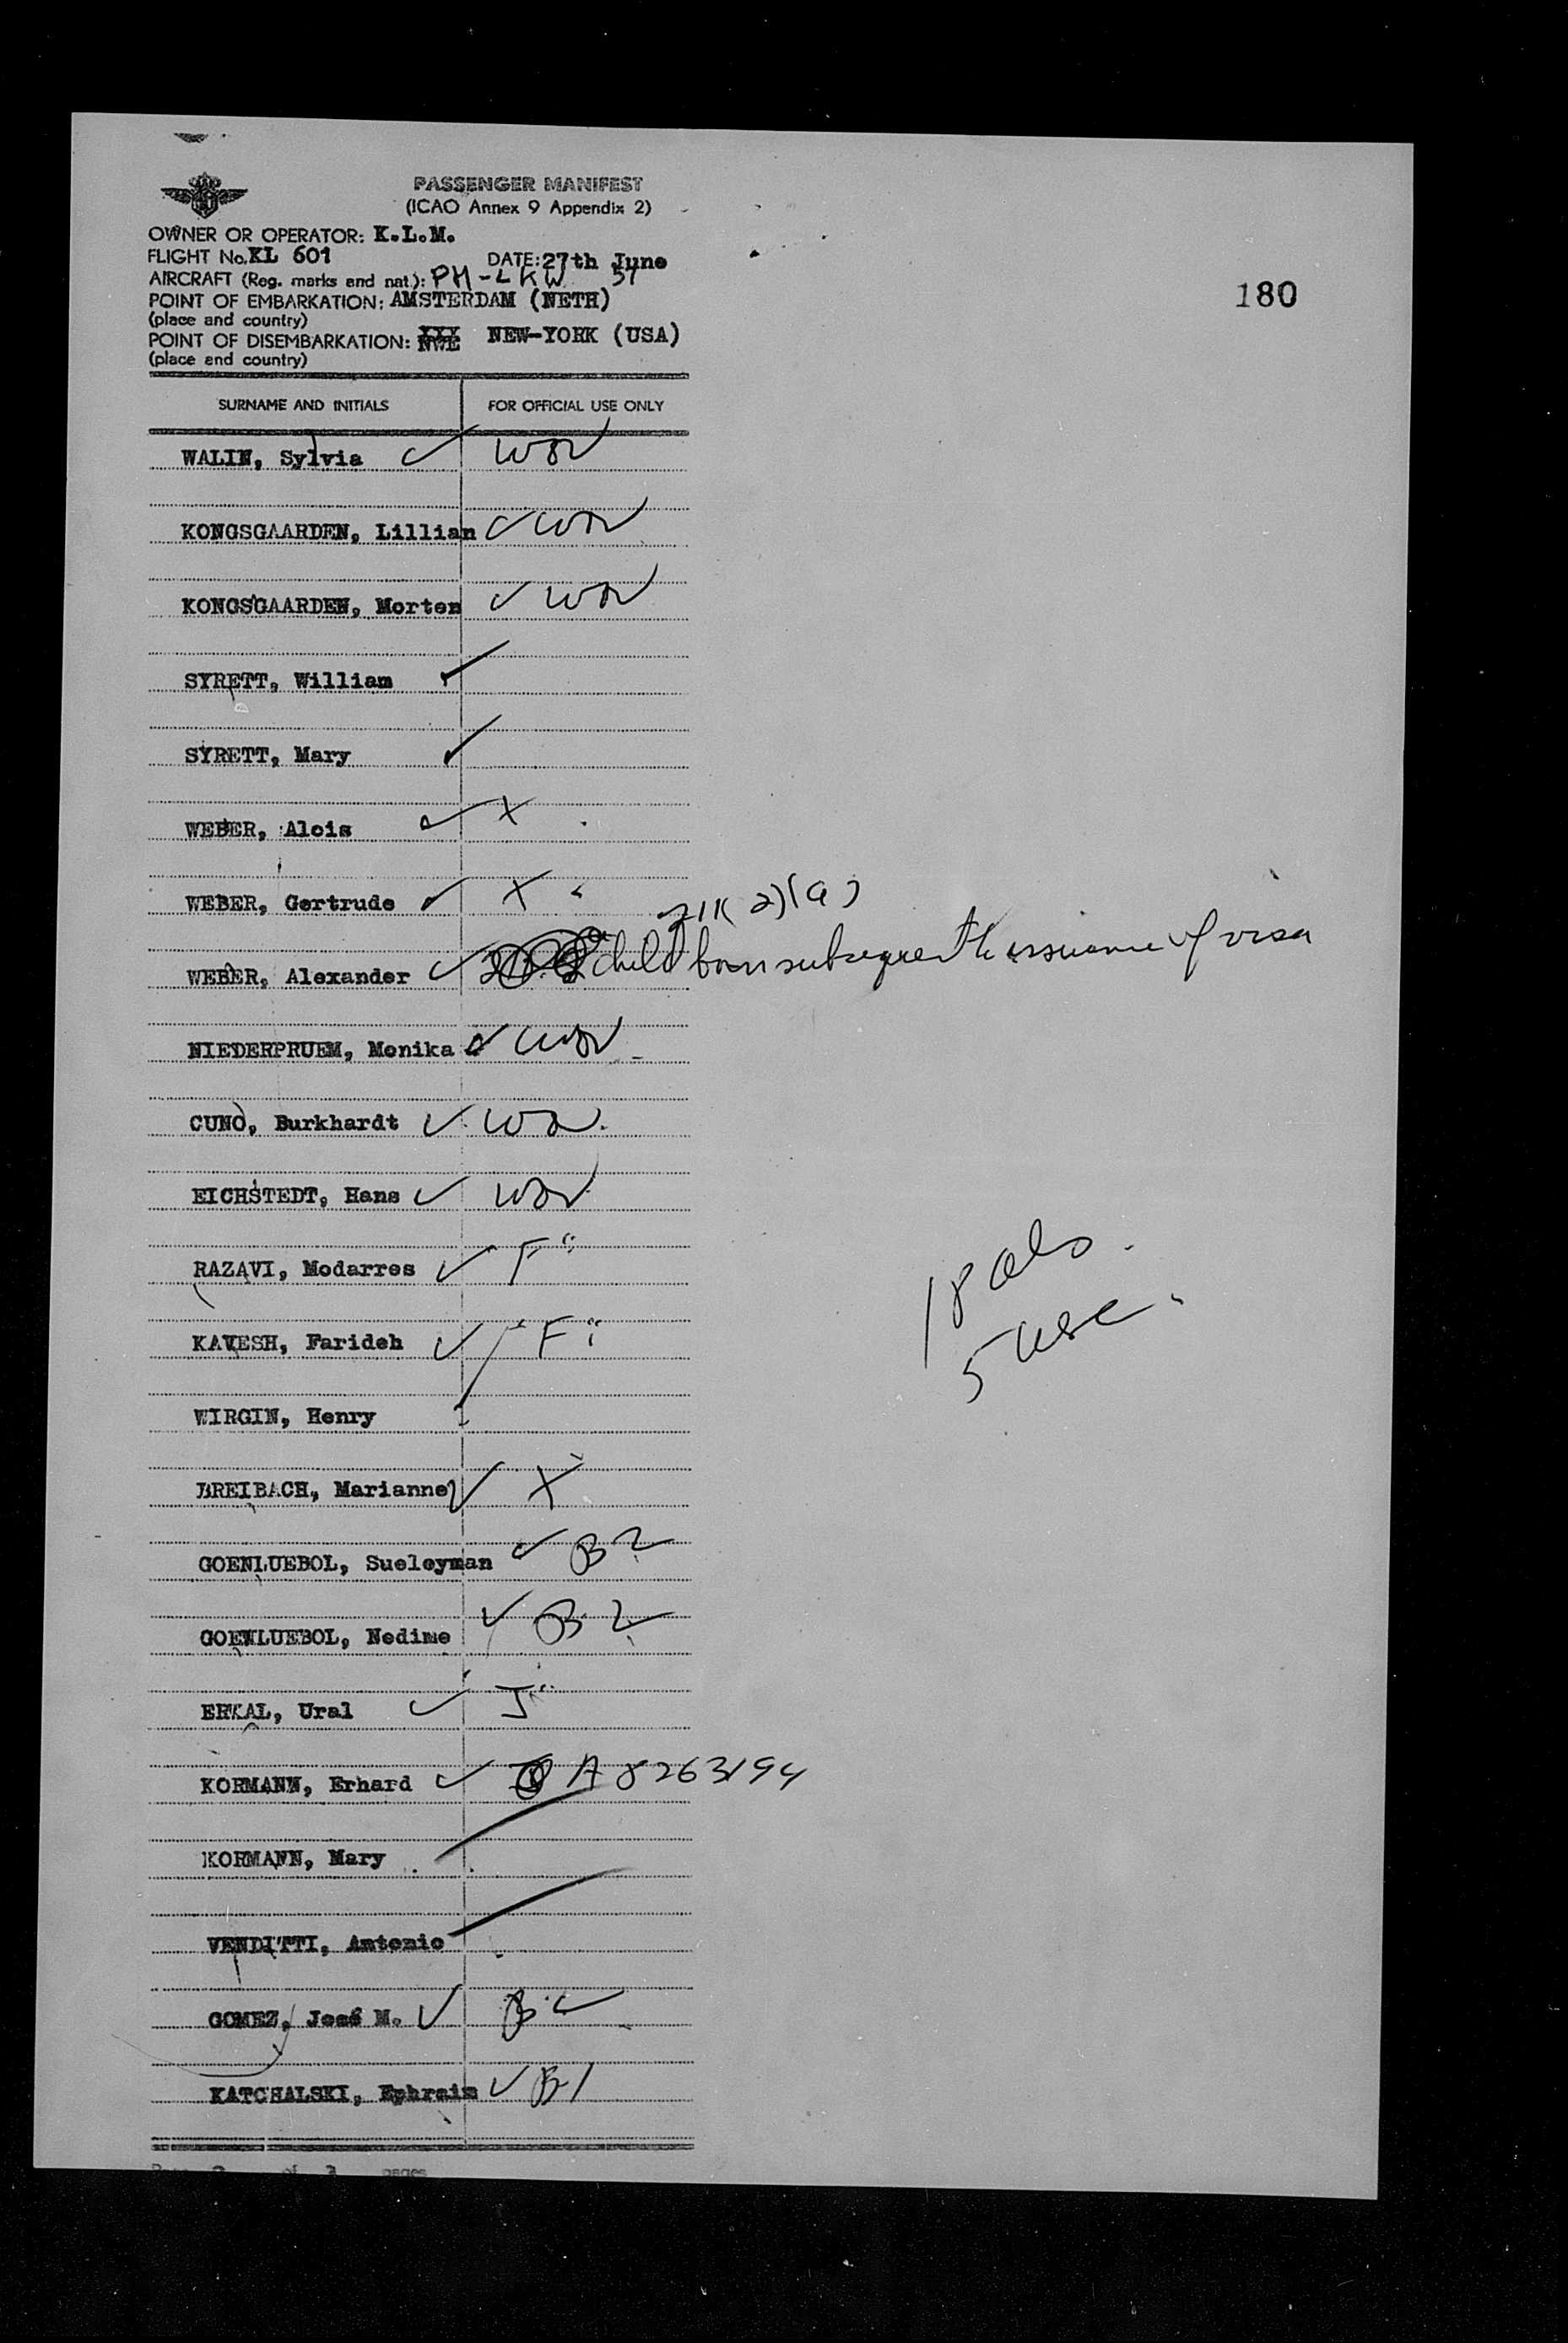 PASSENGER MANIFEST
(ICAO Annex 9 Appendix 2)
OWNER OR OPERATOR: K.L.M.
FLIGHT No. KL 601 DATE: 27th June
AIRCRAFT (Reg. marks and nat.): PH-LKW 57
POINT OF EMBARKATION: AMSTERDAM (NETH)
(place and country)
180
POINT OF DISEMBARKATION: NEW-YORK (USA)
(place and country)
SURNAME AND INITIALS FOR OFFICIAL USE ONLY
WALIN, Sylvia
KONGSGAARDEN, Lillian
KONGSGAARDEN, Morten
SYRETT, William
SYRETT, Mary
WEBER, Alois X
WEBER, Gertrude X
211(2)(a)
WEBER, Alexander child born subsequent to issuance of visa
NIEDERPRUEM, Monika
CUNO, Burkhardt
EICHSTEDT, Hans
RAZAVI, Modarres F"
KAVESH, Farideh "F"
WIRGIN, Henry
BREIBACH, Marianne X
GOENLUEBOL, Sueleyman B2
GOENLUEBOL, Nedime B2
ERKAL, Ural J"
KORMANN, Erhard A8263194
KORMANN, Mary
VENDITTI, Antonio
GOMEZ, José M.
KATCHALSKI, Ephraim B1
18 als.
5 usc.